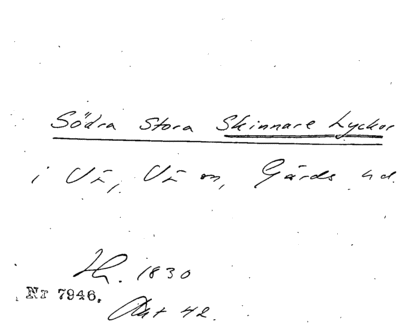 Södra Stora Skinnare Lyckor
i Vä, Vä sn, Gärds hd.
H. 1830
Nr 7946.
Akt 42.